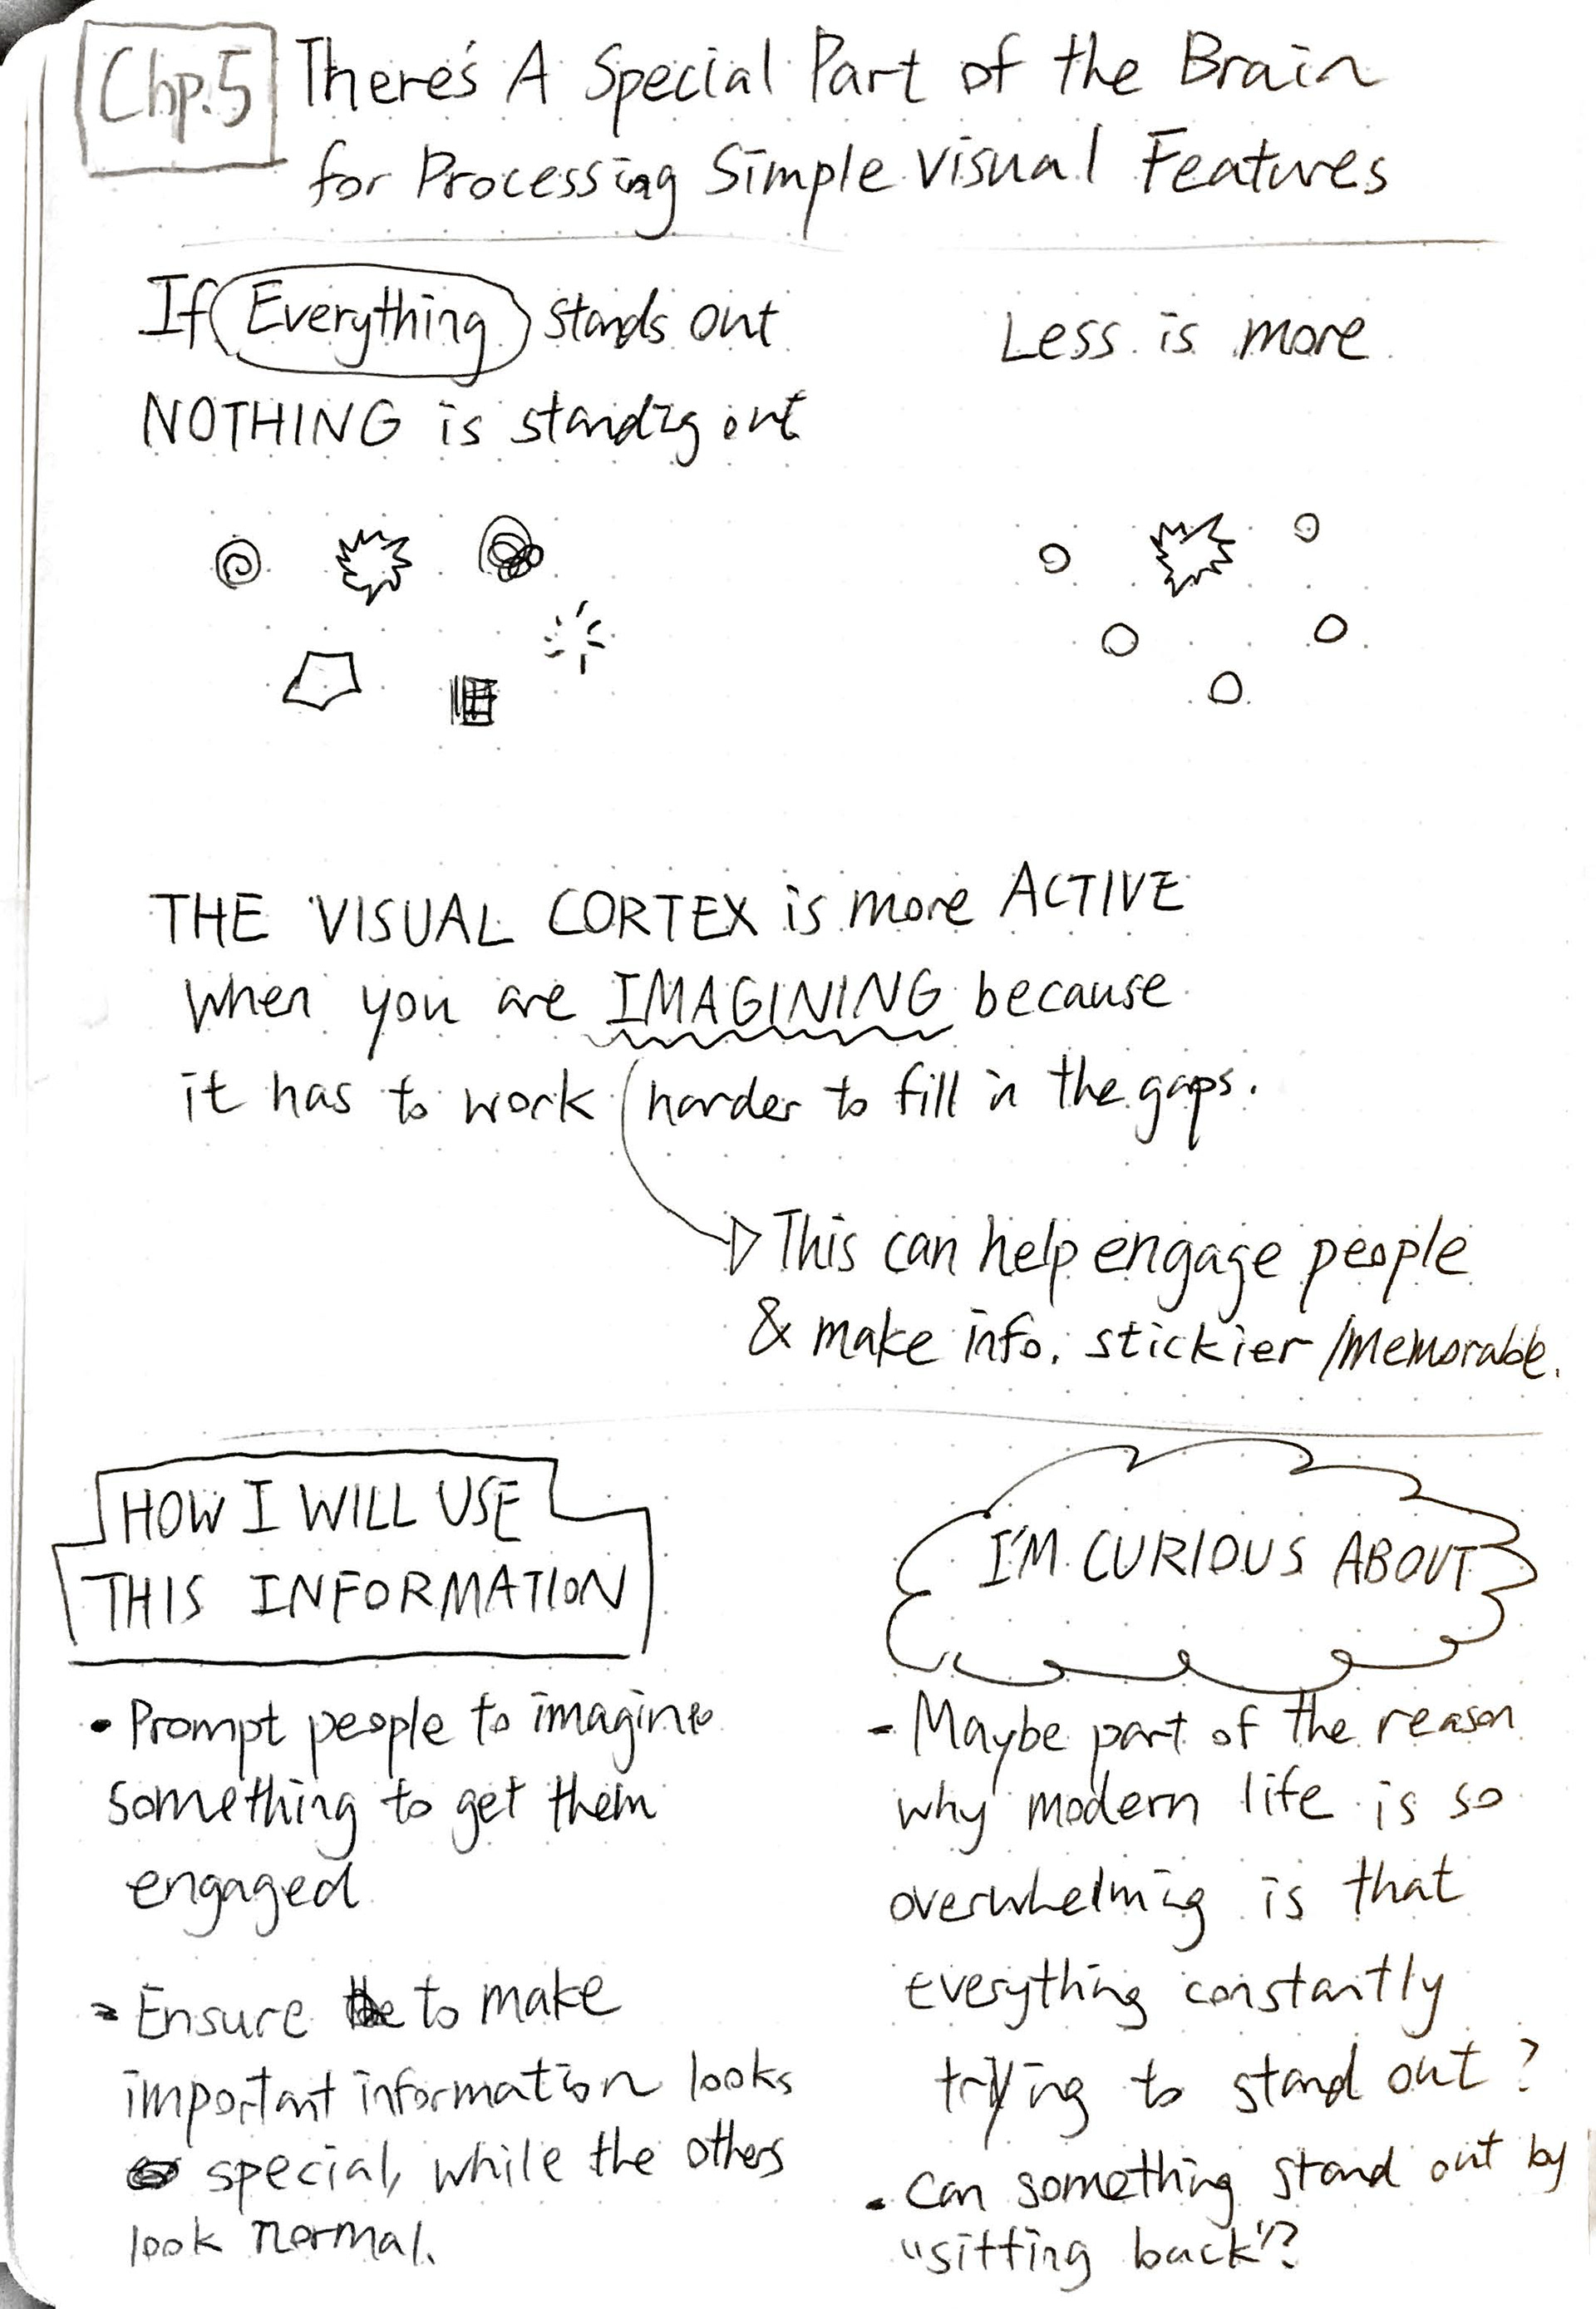 Chp.5
There's A Special Part of the Brain
for Processing Simple Visual Features
If Everything stands out
NOTHING is standing out
Less is more
THE VISUAL CORTEX is more ACTIVE
when you are IMAGINING because
it has to work harder to fill in the gaps.
This can help engage people
& make info. stickier/memorable.
HOW I WILL USE
THIS INFORMATION
• Prompt people to imagine
something to get them
engaged
- Ensure to make
important information looks
special, while the others
look normal.
I'M CURIOUS ABOUT
- Maybe part of the reason
why modern life is so
overwhelming is that
everything constantly
trying to stand out?
• Can something stand out by
"sitting back"?